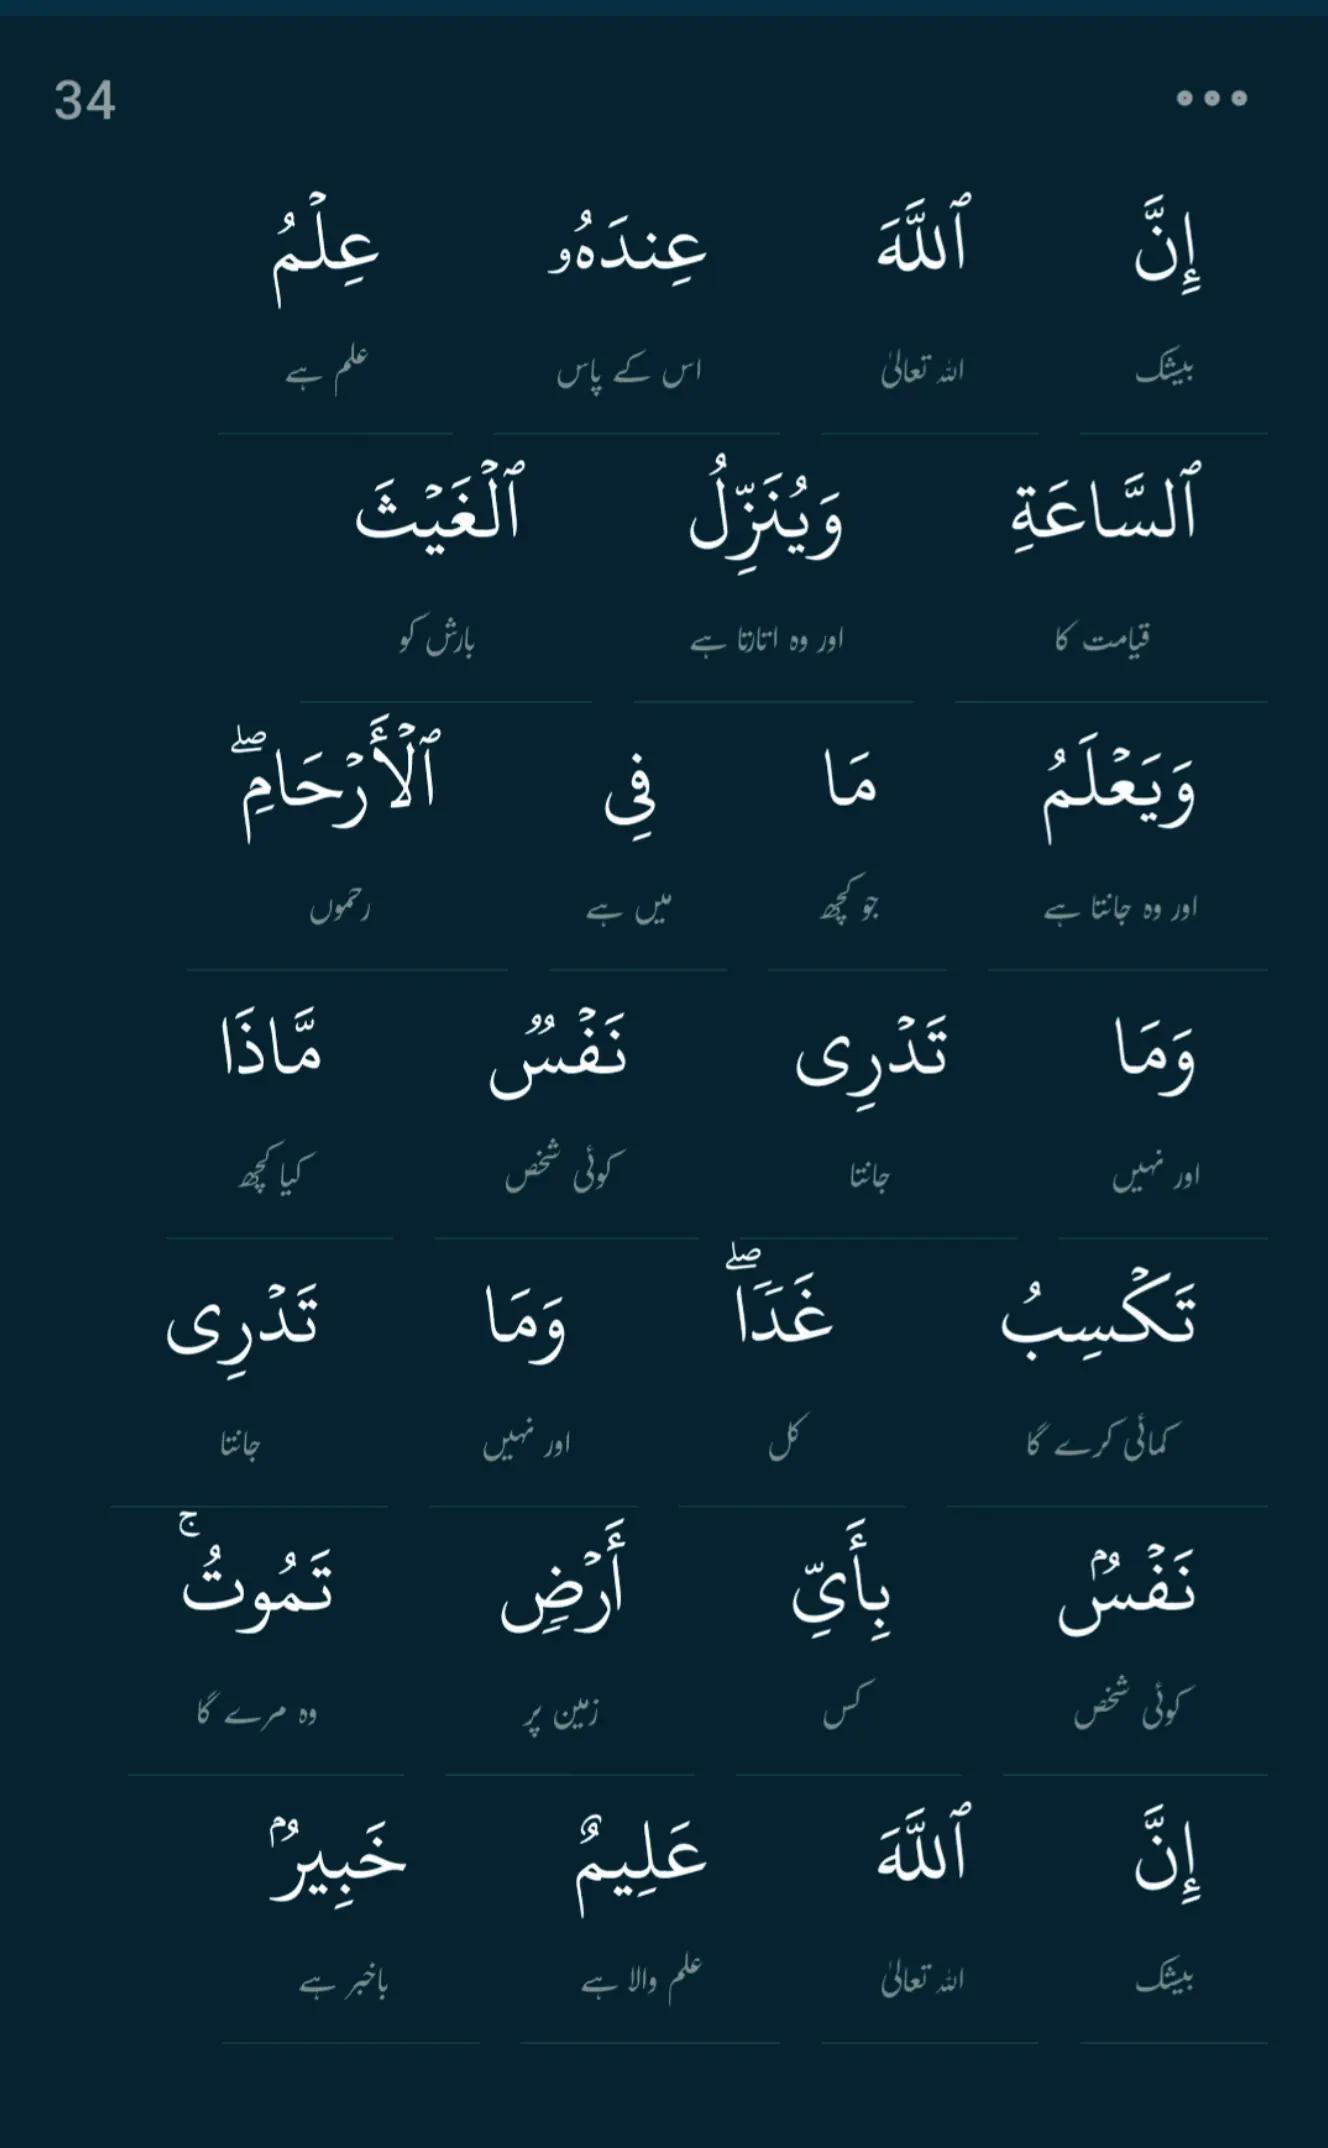 34
إِنَّ ٱللَّهَ عِندَهُۥ عِلۡمُ
بیشک اللہ تعالیٰ اس کے پاس علم ہے
ٱلسَّاعَةِ وَيُنَزِّلُ ٱلۡغَيۡثَ
قیامت کا اور وہ اتارتا ہے بارش کو
وَيَعۡلَمُ مَا فِى ٱلۡأَرۡحَامِۖ
اور وہ جانتا ہے جو کچھ میں ہے رحموں
وَمَا تَدۡرِى نَفۡسٌ مَّاذَا
اور نہیں جانتا کوئی شخص کیا کچھ
تَكۡسِبُ غَدًاۖ وَمَا تَدۡرِى
کمائی کرے گا کل اور نہیں جانتا
نَفۡسُۢ بِأَىِّ أَرۡضٍ تَمُوتُۚ
کوئی شخص کس زمین پر وہ مرے گا
إِنَّ ٱللَّهَ عَلِيمٌ خَبِيرُۢ
بیشک اللہ تعالیٰ علم والا ہے باخبر ہے